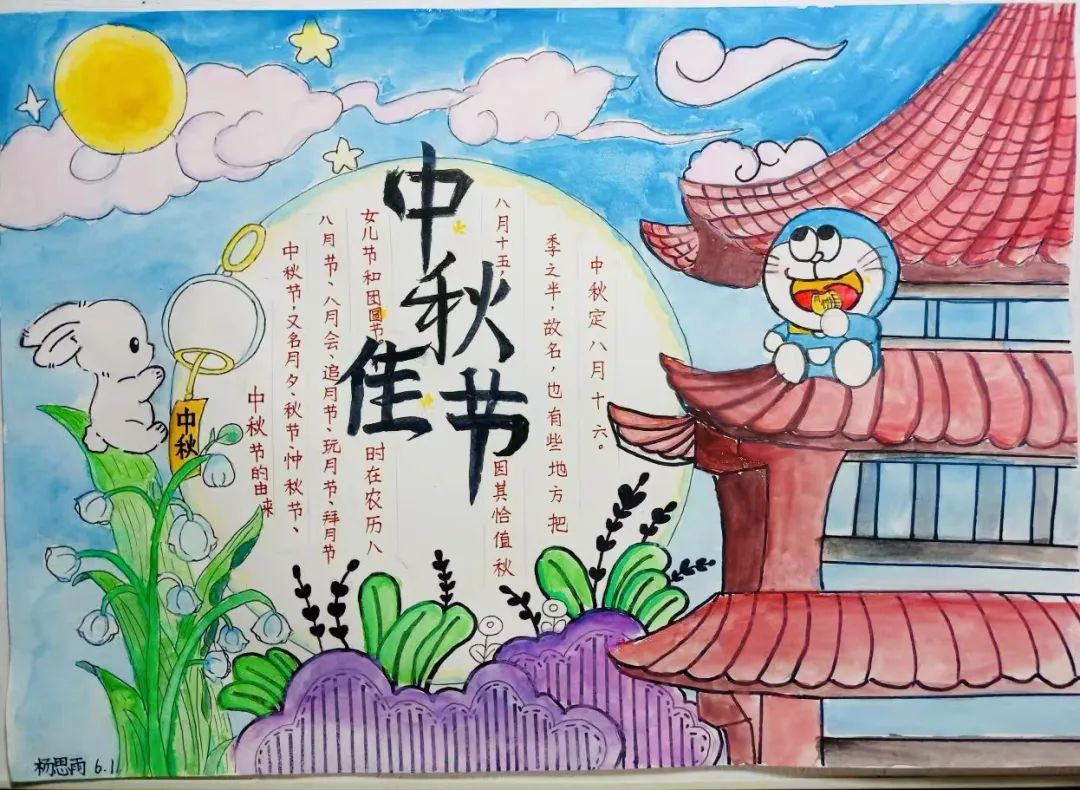 中秋佳节
中秋节的由来
中秋节,又名月夕、秋节忡秋节、
八月节、八月会、追月节、玩月节、拜月节
女儿节和团圆节,时在农历八
八月十五,因其恰值秋
季之半,故名,也有些地方把
中秋定八月十六。
中秋
杨思雨 6.1